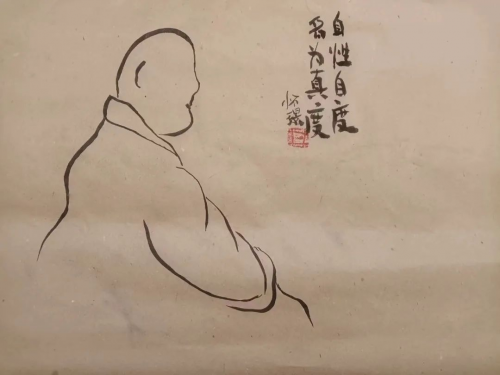 自性自度
名为真度
怀